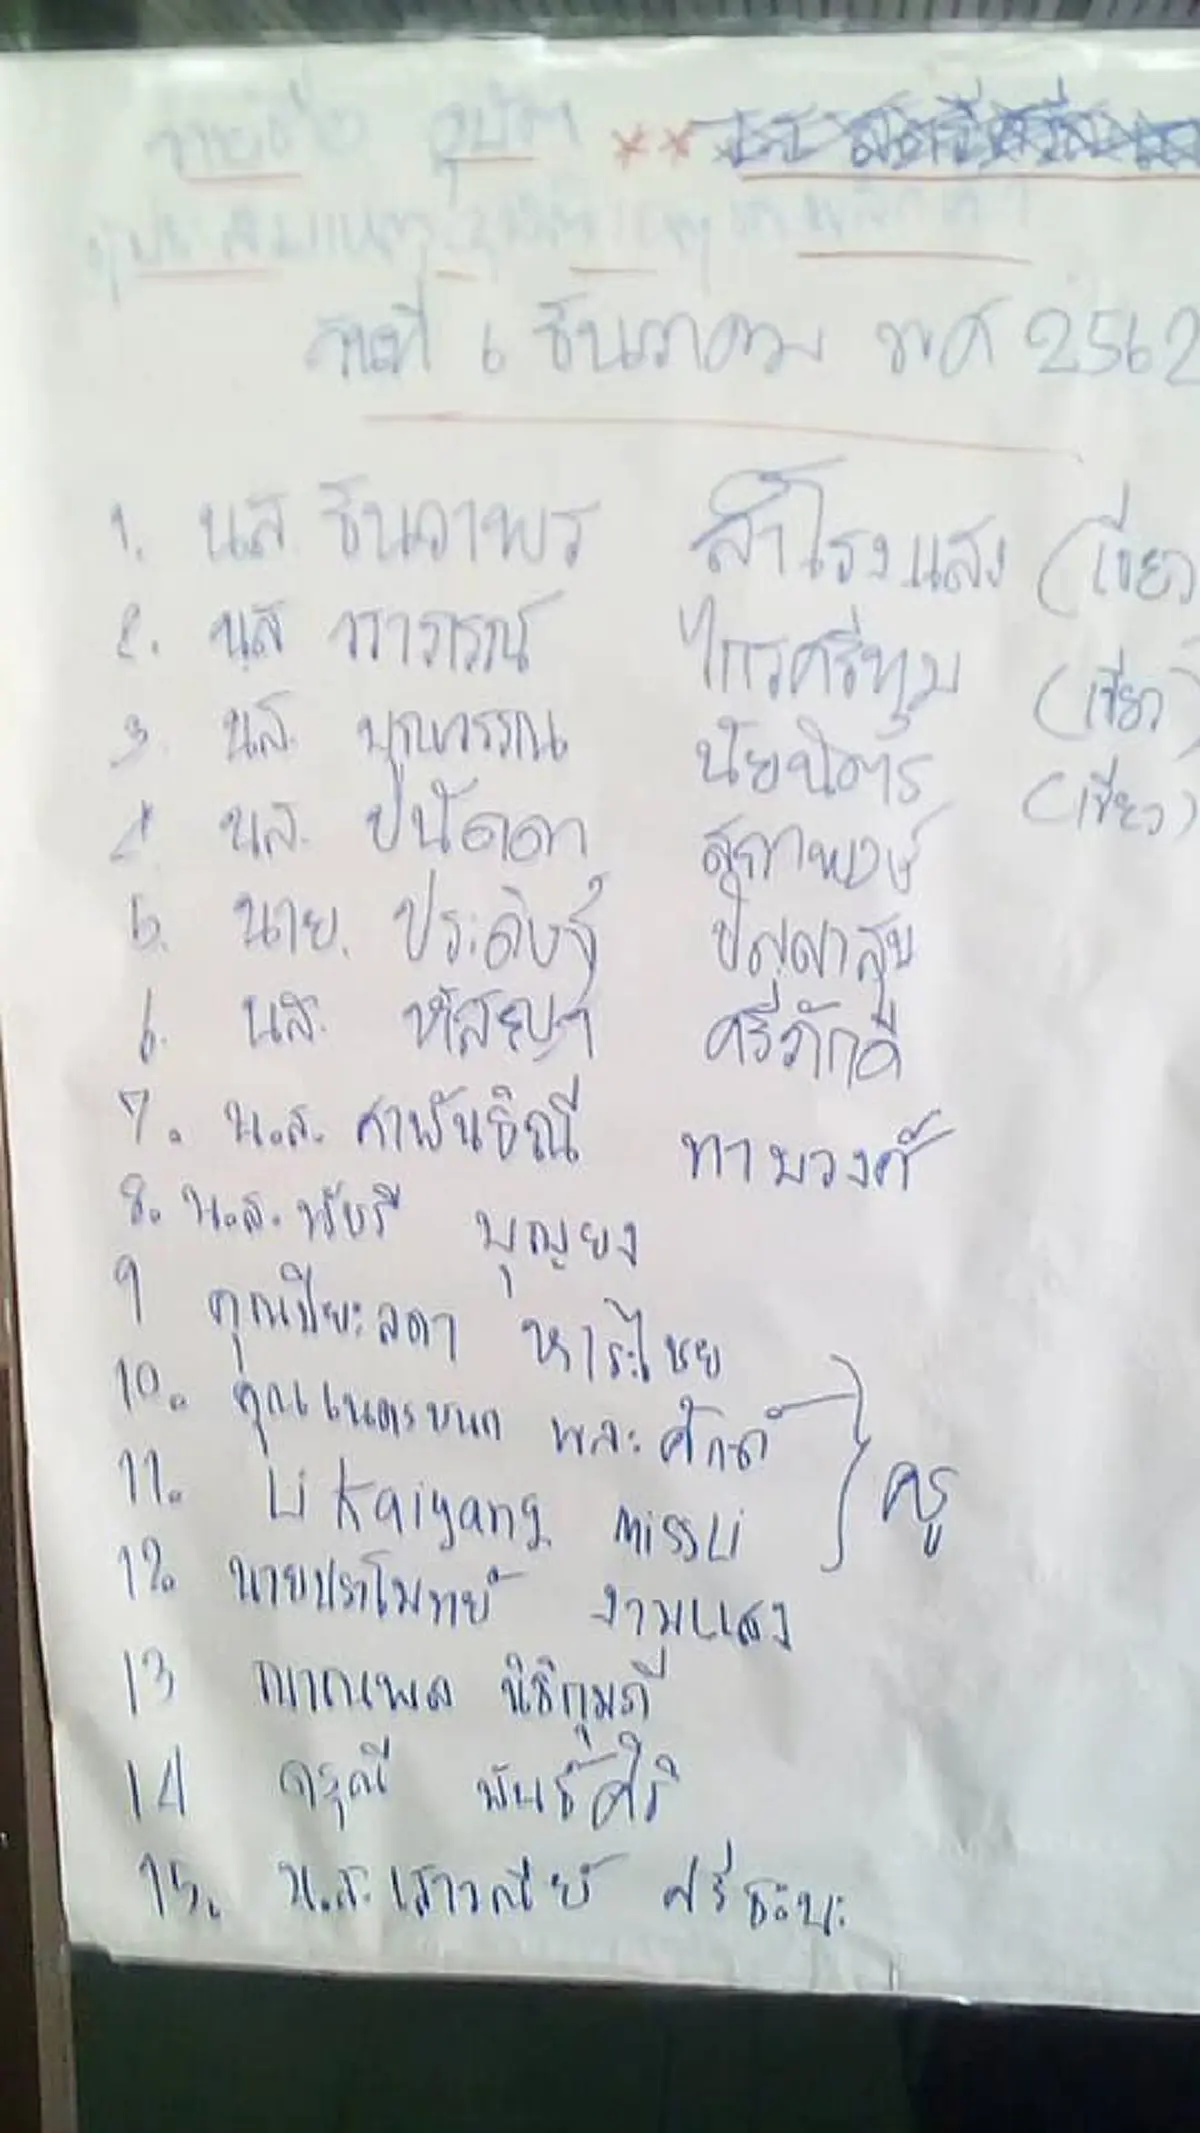 รายชื่อ อุบัติ **
วันที่ 6 ธันวาคม พศ 2562
1. นส. ธันวาพร สำโรงแสง (เขียว
2. นส วราภรณ์ ไกรศรีทุม (เขียว)
3. นส. บุณวรรณ นัยนิตร์ (เขียว)
4. นส. ปนัดดา สุภาพงษ์
5. นาย. ประดิษฐ์ ปัญญาสุข
6. นส. หัสยา ศรีภักดี
7. น.ส. ศาพันธิณี ทามวงศ์
8. น.ส. พัชรี บุญยง
9 คุณปิยะลดา หาระไชย
10. คุณเนตรชนก พละศักดิ์
11. Li Kaiyang missLi
ครู
12. นายปราโมทย์ งามแสง
13 ญาณพล นิธิกุมภี
14 ดรุณี พันธ์ศิริ
15. น.ส. เสาวณีย์ ศรีธะนะ